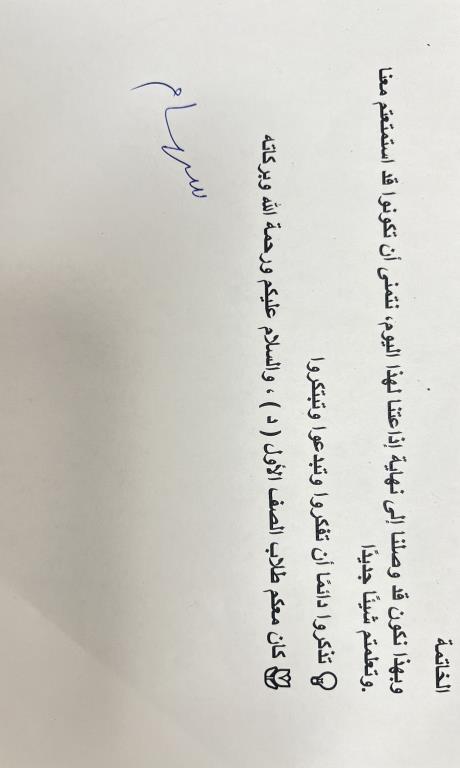 الخاتمة
وبهذا نكون قد وصلنا إلى نهاية إذاعتنا لهذا اليوم، نتمنى أن تكونوا قد استمتعتم معنا
وتعلمتم شيئًا جديدًا.
تذكروا دائمًا أن تفكروا وتبدعوا وتبتكروا
كان معكم طلاب الصف الأول ( د ) ، والسلام عليكم ورحمة الله وبركاته
سهام